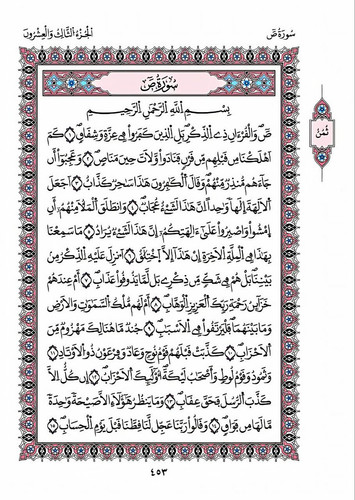 سُورَةُ صٓ
الْجُزْءُ الثَّالِثُ وَالْعِشْرُونَ
ثُمُنُ
سُورَةُ صٓ
بِسْمِ اللَّهِ الرَّحْمَٰنِ الرَّحِيمِ
صٓ وَالْقُرْءَانِ ذِے الذِّكْرِ بَلِ الذِينَ كَفَرُواْ فِے عِزَّةٖ وَشِقَاقٖ ١ كَمَ
اَهْلَكْنَا مِن قَبْلِهِم مِّن قَرْنٖ فَنَادَواْ وَّلَاتَ حِينَ مَنَاصٖ ٢ وَعَجِبُوٓاْ أَن
جَآءَهُم مُّنذِرٞ مِّنْهُمْ وَقَالَ الْكَٰفِرُونَ هَٰذَا سَٰحِرٞ كَذَّابٌ ٣ اَجَعَلَ
الَالِهَةَ إِلَٰهاٗ وَٰحِداً اِنَّ هَٰذَا لَشَےْءٌ عُجَابٞ ٤ وَانطَلَقَ الْمَلَأُ مِنْهُمُۥٓ أَنِ
اِمْشُواْ وَاصْبِرُواْ عَلَيٰٓ ءَالِهَتِكُمُۥٓ إِنَّ هَٰذَا لَشَےْءٞ يُرَادُ ٥ مَا سَمِعْنَا
بِهَٰذَا فِے الْمِلَّةِ الَاخِرَةِ إِنْ هَٰذَآ إِلَّا اَخْتِلَٰقٌ ٦ اَ۟نزِلَ عَلَيْهِ الذِّكْرُ مِنۢ
بَيْنِنَا بَلْ هُمْ فِے شَكّٖ مِّن ذِكْرِے بَل لَّمَّا يَذُوقُواْ عَذَابِ ٧ أَمْ عِندَهُمْ
خَزَآئِنُ رَحْمَةِ رَبِّكَ الْعَزِيزِ الْوَهَّابِ ٨ أَمْ لَهُم مُّلْكُ السَّمَٰوَٰتِ وَالَارْضِ
وَمَا بَيْنَهُمَا فَلْيَرْتَقُواْ فِے الَاسْبَٰبِ ٩ جُندٞ مَّا هُنَالِكَ مَهْزُومٞ مِّنَ
الَاحْزَابِ ١٠ كَذَّبَتْ قَبْلَهُمْ قَوْمُ نُوحٖ وَعَادٞ وَفِرْعَوْنُ ذُو الَاوْتَادِ ١١
وَثَمُودُ وَقَوْمُ لُوطٖ وَأَصْحَٰبُ لَيْكَةَ أُوْلَٰٓئِكَ الَاحْزَابُ ١٢ إِن كُلٌّ اِلَّا
كَذَّبَ الرُّسُلَ فَحَقَّ عِقَابِ ١٣ وَمَا يَنظُرُ هَٰٓؤُلَآءِ اِلَّا صَيْحَةٗ وَٰحِدَةٗ
مَّا لَهَا مِن فَوَاقٖ ١٤ وَقَالُواْ رَبَّنَا عَجِّل لَّنَا قِطَّنَا قَبْلَ يَوْمِ الْحِسَابِ ١٥
٤٥٣